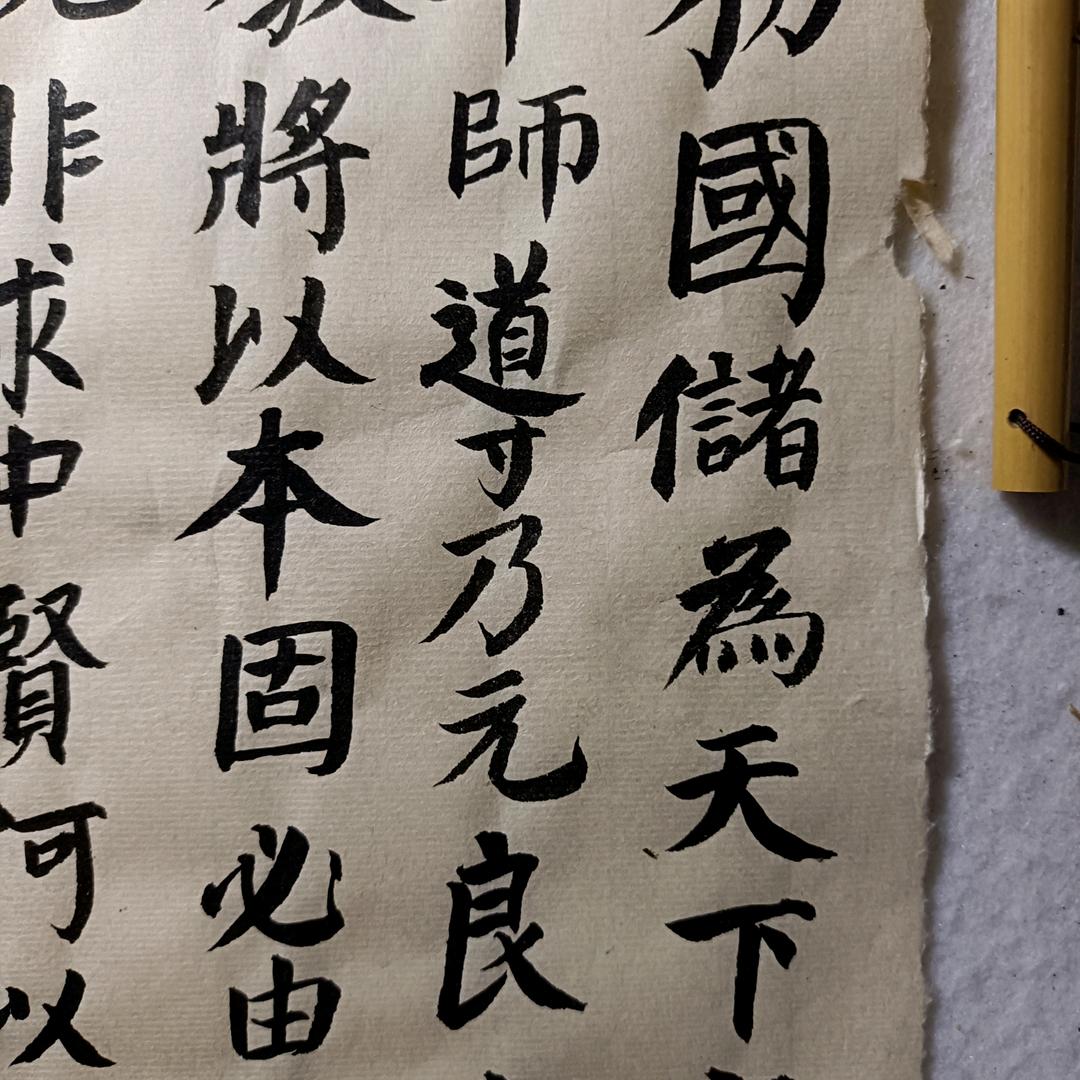 國儲為天下
師導乃元良
將以本固必由
非求中賢何以